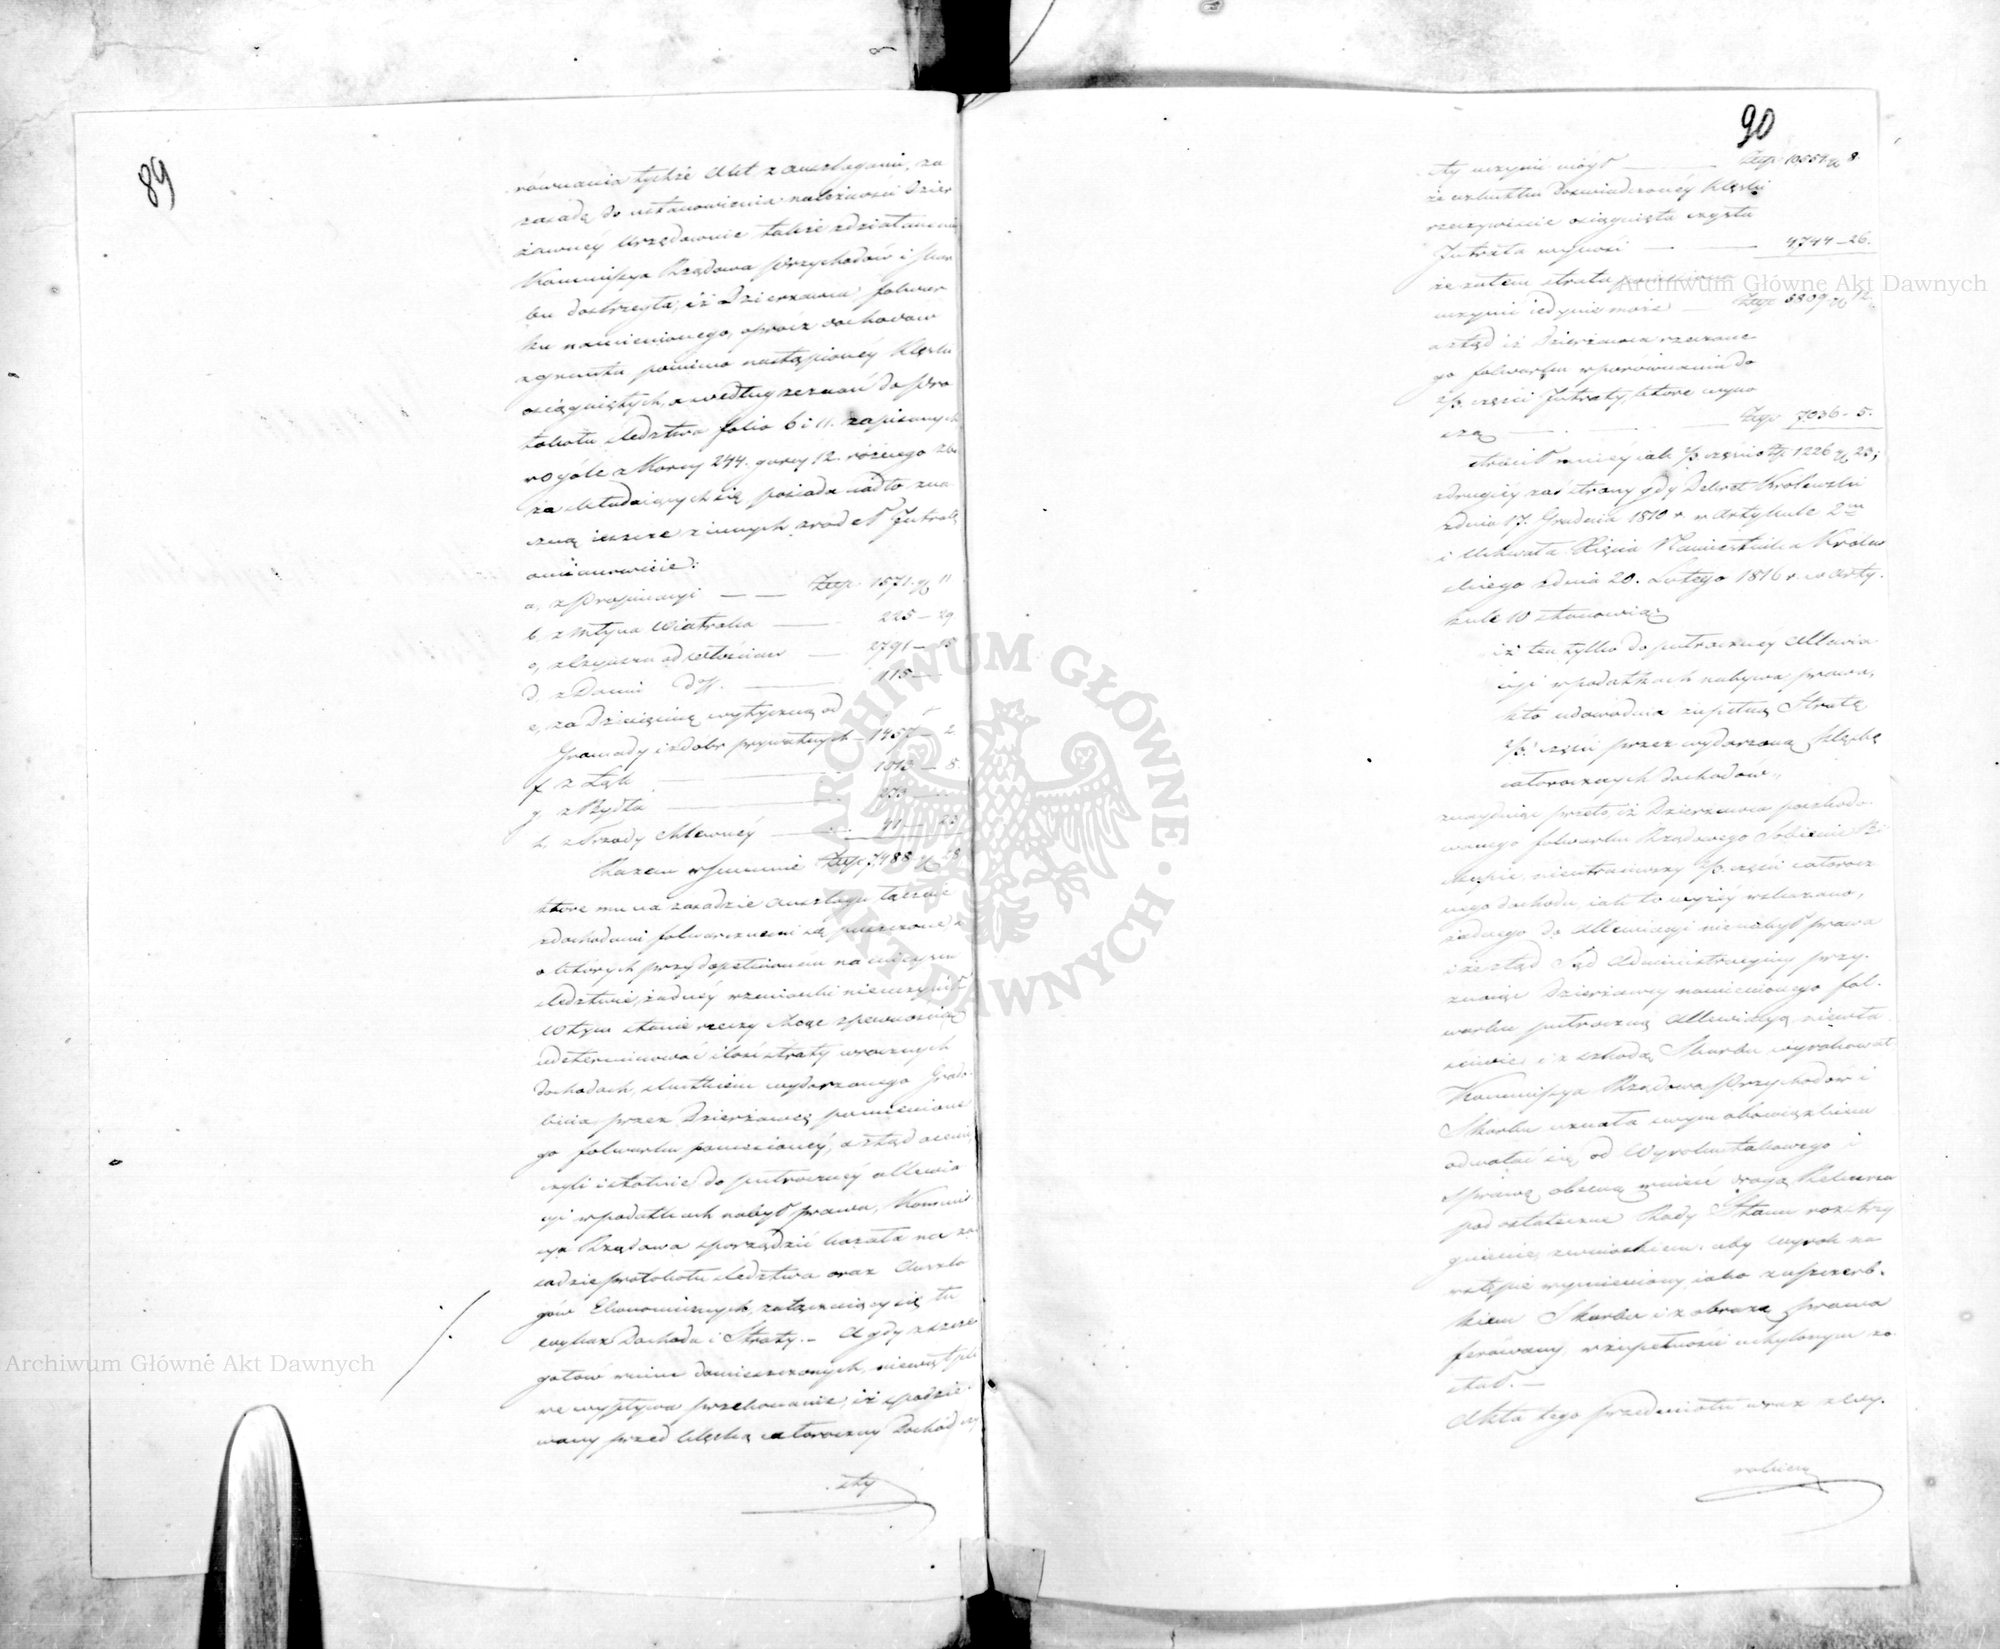 89
równania tychże Akt z anszlagami, za
zasadę do ustanowienia należności Dzier
żawnéy Urzędownie także zdziałanemi
Kommissya Rządowa Przychodów i Skar
bu dostrzegła, iż Dzierżawca folwar
ku namienionego, oprócz dochodów
z gruntu pomimo nastąpionéy klęski
osiągniętych, a według zeznań do Pro
tokołu śledztwa folio 6 i 11. zapisanych
w ogóle z Korcy 244. garcy 12. różnego zbo
ża składaiących się, posiada nadto zna
czną ieszcze z innych źródeł Jntratę
a mianowicie:
a, z Propinacyi — — Złp 1571. gr 11
b, z Młyna Wiatraka — 225 — 29
c, z Czynszu od Włościan — 2791 — 15
d, z Danin do. — 115 —
e, za Dziesięcinę wytyczną od
Gromady i z dóbr prywatnych — 1457 — 2.
f, z Łąk — 1013 — 5.
g, z Bydła — 273 —
h, z Trzody Chlewnéy — 41 — 23
Razem w Summie Złp 7488 gr 28
które mu na zasadzie Anszlagu łącznie
z dochodami folwarcznemi są puszczone, a
o których przy dopełnioném na mieyscu
śledztwie, żadnéy wzmianki nieuczynił
W tym stanie rzeczy chcąc z pewnością
udeterminować ilość straty w rocznych
dochodach, skutkiem wydarzonego Grado-
bicia przez Dzierżawcę pomienione
go folwarku poniesionéy, a ztąd oceni
czyli istotnie do półrocznéy allewia
cyi w podatkach nabył prawa, Kommis
sya Rządowa sporządzić kazała na za
sadzie protokołu śledztwa oraz Anszla
gów Ekonomicznych, załączaiący się tu
wykaz Dochodu i Straty. — A gdy z szcze
gółów w nim domieszczonych, niewątpli
we wypływa przekonanie, iż spodzie
wany przed klęską całoroczny Dochód czy
sty
90
sty uczynić mógł — Złp 10554 gr 8.
że w skutku doświadczonéy klęski
rzeczywiście osiągnięta czysta
Jntrata wynosi — — 4744 — 26.
że zatem strata poniesiona
uczynić iedynie może — Złp 5809 gr 12.
a ztąd iż Dzierżawca rzeczone
go folwarku w porównaniu do
2/3 części Jntraty, które wyno
szą — — — Złp 7036 — 5.
stracił mniéy iak 2/3 części o Złp 1226 gr 23;
z drugiéy zaś strony gdy Dekret Królewski
z dnia 17. Grudnia 1810 r. w Artykule 2m
i Uchwała Xięcia Namiestnika Królew
skiego z dnia 20. Lutego 1816 r. w Arty-
kule 10 stanowią:
iż ten tylko do półrocznéy Allewia
cyi w podatkach nabywa prawa,
kto udowodnia zupełną Stratę
2/3 części przez wydarzoną klęskę
całorocznych dochodów,
znayduiąc przeto, iż Dzierżawca poszkodo-
wanego folwarku Rządowego Sobienie Bi
skupie, nieutraciwszy 2/3 części całorocz
nego dochodu, iak to wyżéy wskazano,
żadnego do Allewiacyi nienabył prawa
i że ztąd Sąd Administracyiny przy-
znaiąc Dzierżawcy namienionego fol-
warku półroczną Allewiacyą niewła
ściwie i z szkodą Skarbu wyrokował
Kommissya Rządowa Przychodów i
Skarbu uznała swym obowiązkiem
odwołać się od Wyroku takowego i
sprawę obecną wnieść drogą Rekursu
pod ostateczne Rady Stanu rozstrzy
gnienie, z wnioskiem, aby wyrok na
wstępie wymieniony, iako z uszczerb-
kiem Skarbu i z obrazą prawa
ferowany, w zupełności uchylonym zo
stał. —
Akta tego przedmiotu wraz z Wy-
rokiem
Archiwum Główne Akt Dawnych
Archiwum Główne Akt Dawnych
ARCHIWUM GŁÓWNE AKT DAWNYCH